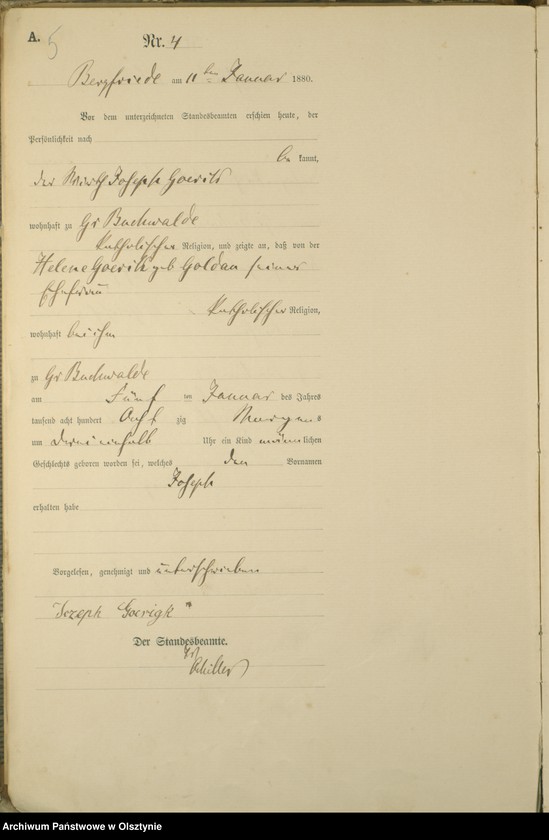 A. 5
Nr. 4
Bergfriede am 11 ten Januar 1880.
Vor dem unterzeichneten Standesbeamten erschien heute, der
Persönlichkeit nach
be kannt,
der Wirth Joseph Goerik
wohnhaft zu Gr Buchwalde
katholischer Religion, und zeigte an, daß von der
Helene Goerik geb Goldau seiner
Ehefrau
katholischer Religion,
wohnhaft bei ihm
zu Gr Buchwalde
am Fünf ten Januar des Jahres
tausend acht hundert Acht zig Morgens
um Dreieinhalb Uhr ein Kind männlichen
Geschlechts geboren worden sei, welches den Vornamen
Joseph
erhalten habe
Vorgelesen, genehmigt und unterschrieben
Jozeph Goerigk
Der Standesbeamte.
Schiller
Archiwum Państwowe w Olsztynie